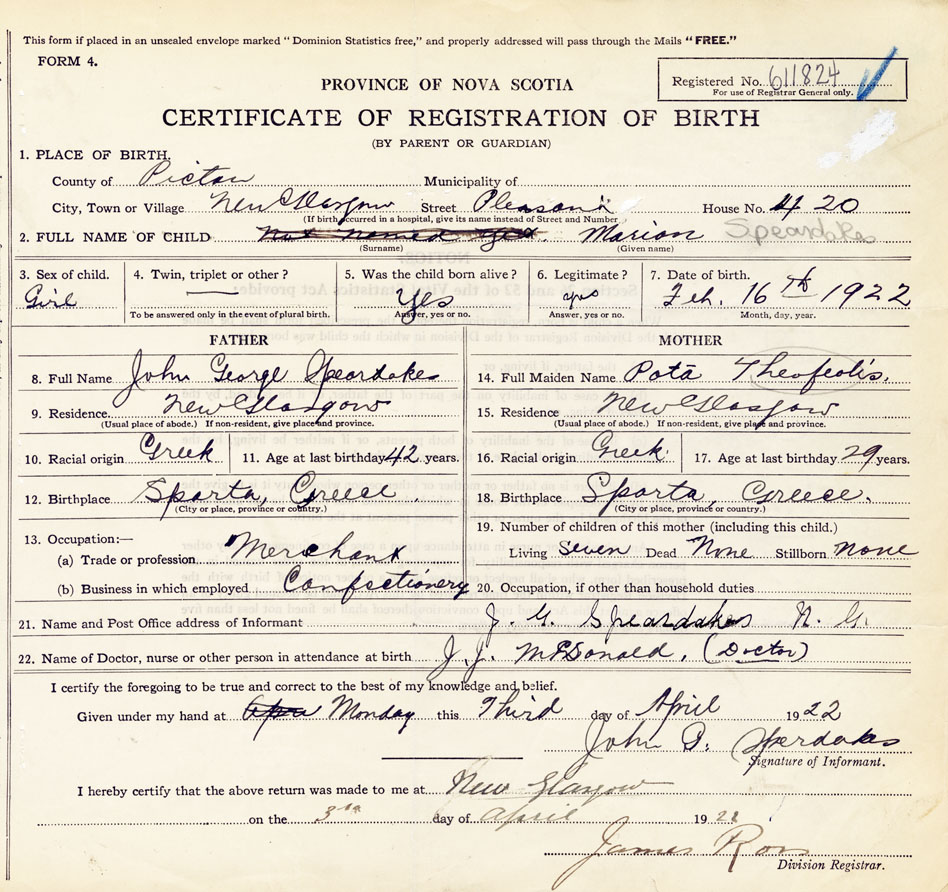 This form if placed in an unsealed envelope marked "Dominion Statistics free," and properly addressed will pass through the Mails "FREE."
FORM 4.
Registered No. 611824
For use of Registrar General only.
PROVINCE OF NOVA SCOTIA
CERTIFICATE OF REGISTRATION OF BIRTH
(BY PARENT OR GUARDIAN)
1. PLACE OF BIRTH.
County of Pictou Municipality of
City, Town or Village New Glasgow Street Pleasant House No. 420
(If birth occurred in a hospital, give its name instead of Street and Number
2. FULL NAME OF CHILD Not named yet. Marion Speardakes
(Surname) (Given name)
3. Sex of child. 4. Twin, triplet or other? 5. Was the child born alive? 6. Legitimate? 7. Date of birth.
Girl — Yes yes Feb. 16th 1922
To be answered only in the event of plural birth. Answer, yes or no. Answer, yes or no. Month, day, year.
FATHER MOTHER
8. Full Name John George Speardakes 14. Full Maiden Name Pota Theofeolis.
9. Residence New Glasgow 15. Residence New Glasgow
(Usual place of abode.) If non-resident, give place and province. (Usual place of abode.) If non-resident, give place and province.
10. Racial origin Greek 11. Age at last birthday 42 years. 16. Racial origin Greek 17. Age at last birthday 29 years.
12. Birthplace Sparta, Greece. 18. Birthplace Sparta, Greece.
(City or place, province or country.) (City or place, province or country.)
13. Occupation:— 19. Number of children of this mother (including this child.)
(a) Trade or profession Merchant Living Seven Dead None Stillborn none
(b) Business in which employed Confectionery 20. Occupation, if other than household duties
21. Name and Post Office address of Informant J. G. Speardakes N. G.
22. Name of Doctor, nurse or other person in attendance at birth J. J. McDonald, (Doctor)
I certify the foregoing to be true and correct to the best of my knowledge and belief.
Given under my hand at Monday this Third day of April 1922
John G. Sperdakes
Signature of Informant.
I hereby certify that the above return was made to me at New Glasgow
on the 3rd day of April 1922
James Ross
Division Registrar.